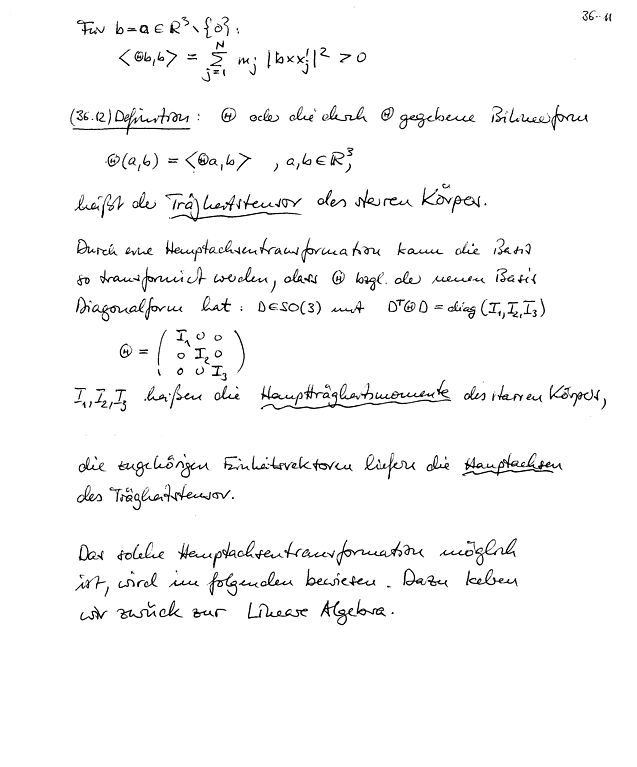 36-11
Für b=a ∈ ℝ³∖{0}:
⟨Θb,b⟩ = ∑_{j=1}^{N} m_j |b×x'_j|² > 0
(36.12) Definition: Θ oder die durch Θ gegebene Bilinearform
Θ(a,b) = ⟨Θa,b⟩ , a,b ∈ ℝ³,
heißt der Trägheitstensor des starren Körpers.
Durch eine Hauptachsentransformation kann die Basis
so transformiert werden, dass Θ bzgl. der neuen Basis
Diagonalform hat: D∈SO(3) mit DᵀΘD = diag(I₁,I₂,I₃)
Θ = ( I₁ 0 0
0 I₂ 0
0 0 I₃ )
I₁, I₂, I₃ heißen die Hauptträgheitsmomente des starren Körpers,
die zugehörigen Einheitsvektoren liefern die Hauptachsen
des Trägheitstensor.
Das solche Hauptachsentransformation möglich
ist, wird im folgenden bewiesen. Dazu kehren
wir zurück zur Linearen Algebra.